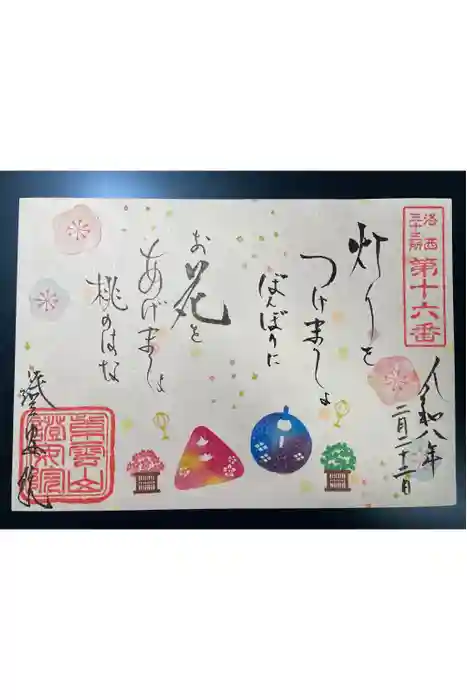 洛西
三十三所
第十六番
令和八年
二月二十二日
灯りを
つけましょ
ぼんぼりに
お花を
あげましょ
桃のはな